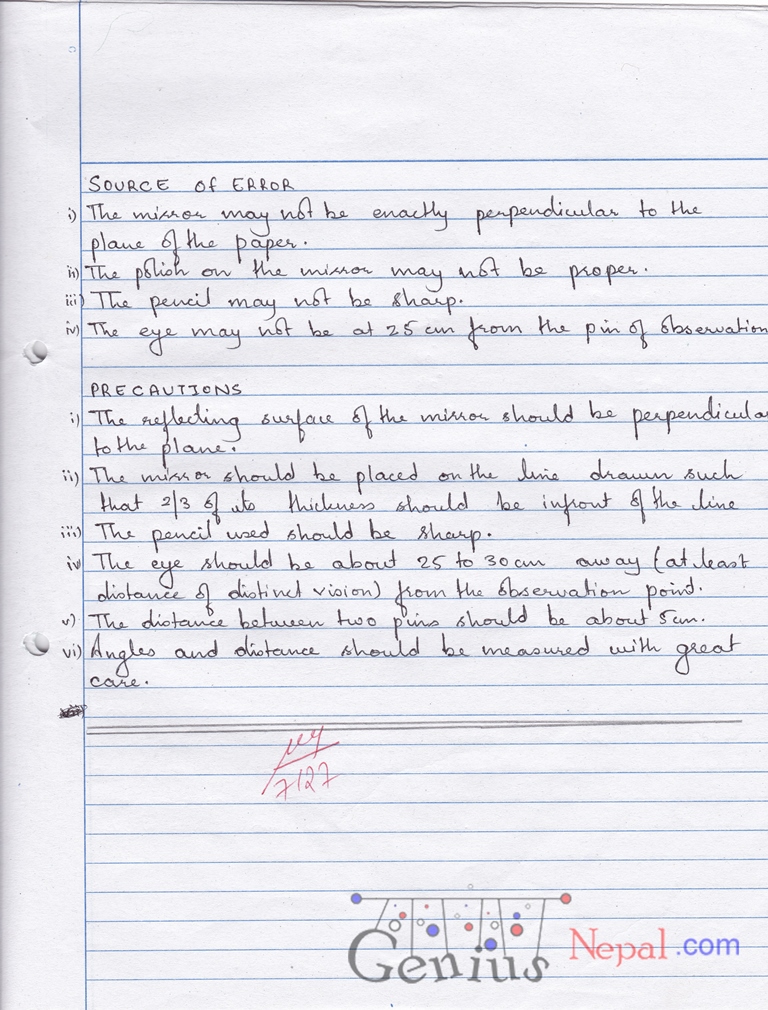 SOURCE OF ERROR
i) The mirror may not be enactly perpendicular to the
plane of the paper.
ii) The polish on the mirror may not be proper.
iii) The pencil may not be sharp.
iv) The eye may not be at 25 cm from the pin of observation
PRECAUTIONS
i) The reflecting surface of the mirror should be perpendicular
to the plane.
ii) The mirror should be placed on the line drawn such
that 2/3 of its thickness should be infront of the line
iii) The pencil used should be sharp.
iv) The eye should be about 25 to 30 cm away (at least
distance of distinct vision) from the observation point.
v) The distance between two pins should be about 5 cm.
vi) Angles and distance should be measured with great
care.
7/27
Genius Nepal.com